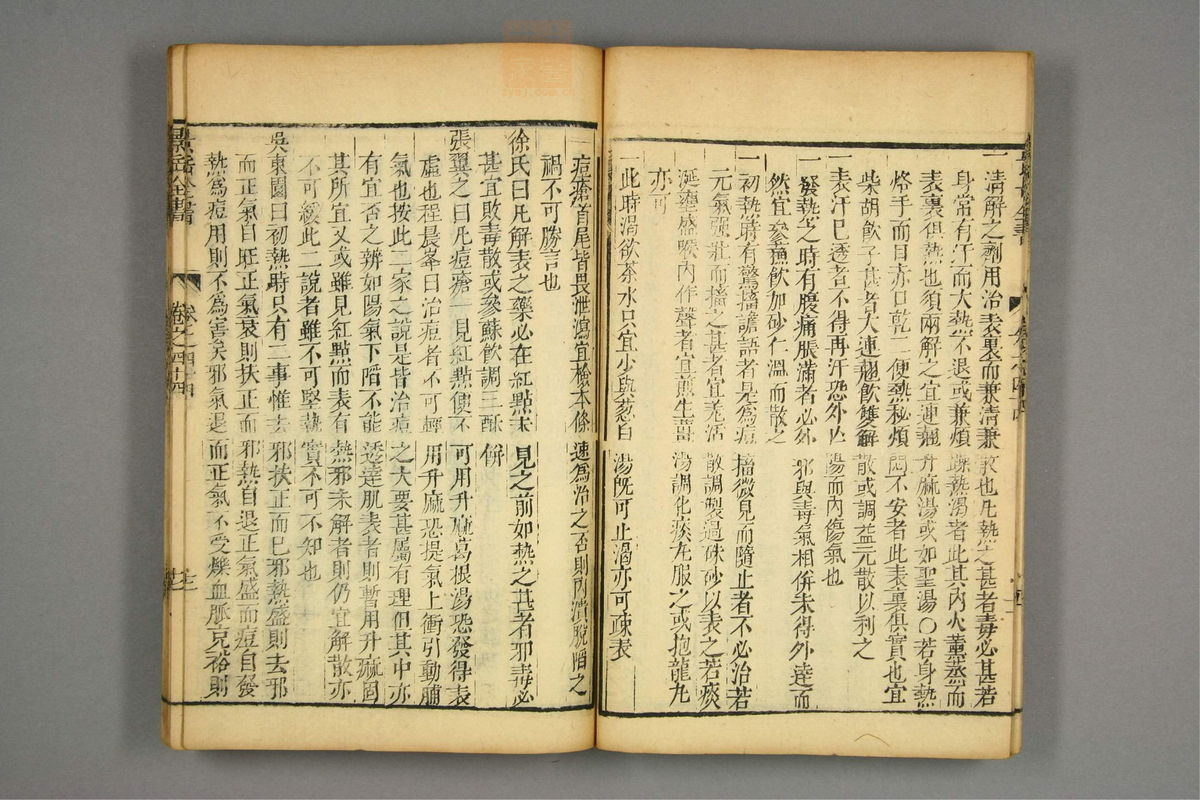 一清解之劑用治表裏而兼清兼散也凡熱之甚者毒必甚若
身常有汗而大熱不退或兼煩躁熱渴者此其內火薰蒸而
表裏俱熱也須兩解之宜連翹升麻湯或如聖湯○若身熱
烙手而目赤口乾二便熱秘煩悶不安者此表裏俱實也宜
柴胡飲子甚者大連翹飲雙解散或調益元散以利之
表汗已透者不得再汗恐外亡陽而內傷氣也
一發熱之時有腹痛脹滿者必外邪與毒氣相併未得外達而
然宜參蘇飲加砂仁溫而散之
一初熱時有驚搐譫語者是為痘搐微見而隨止者不必治若
元氣強壯而搐之甚者宜羌活散調製過硃砂以表之若痰
涎壅盛喉內作聲者宜煎生薑湯調化痰丸服之或抱龍丸
亦可
一此時渴欲茶水只宜少與蔥白湯既可止渴亦可疎表
一痘瘡首尾皆畏泄瀉宜檢本條速為治之否則內潰脫陷之
禍不可勝言也
徐氏曰凡解表之藥必在紅點未見之前如熱之甚者邪毒必
甚宜敗毒散或參蘇飲調三酥餅
張翼之曰凡痘瘡一見紅點便不可用升麻葛根湯恐發得表
虛也程晨峯曰治痘者不可輕用升麻恐提氣上衝引動肺
氣也按此二家之說是皆治痘之大要甚屬有理但其中亦
有宜否之辨如陽氣下陷不能透達肌表者則暫用升麻固
其所宜又或雖見紅點而表有熱邪未解者則仍宜解散亦
不可緩此二說者雖不可堅執實不可不知也
吳東園曰初熱時只有二事惟去邪扶正而已邪熱盛則去邪
而正氣自旺正氣衰則扶正而邪熱自退正氣盛而痘自發
熱為痘用則不為害矣邪氣退而正氣不受爍血脈充裕則
景岳全書
卷之四十四